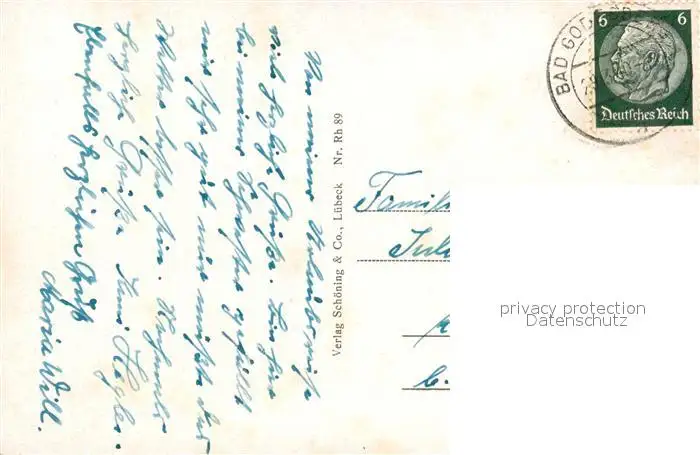 Von meiner Urlaubsreise
viele herzliche Grüße. Bin hier
bei meiner Schwester gefällt
mir sehr gut nur müßte das
Wetter besser sein. Nochmals
herzliche Grüße
Ebenfalls herzlichen Gruß
Maria Will.
Verlag Schöning & Co., Lübeck Nr. Rh 89
BAD GOD
6 6
Deutsches Reich
Famili
privacy protection
Datenschutz